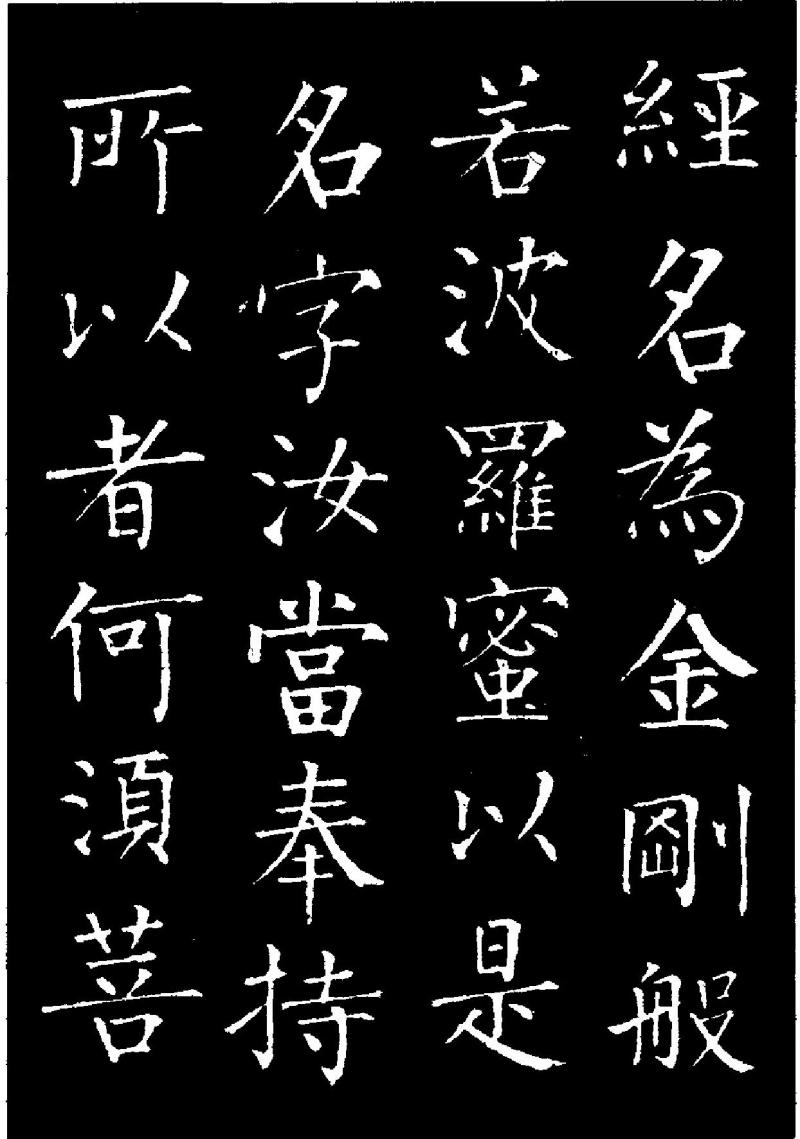 經名為金剛般
若波羅蜜以是
名字汝當奉持
所以者何須菩